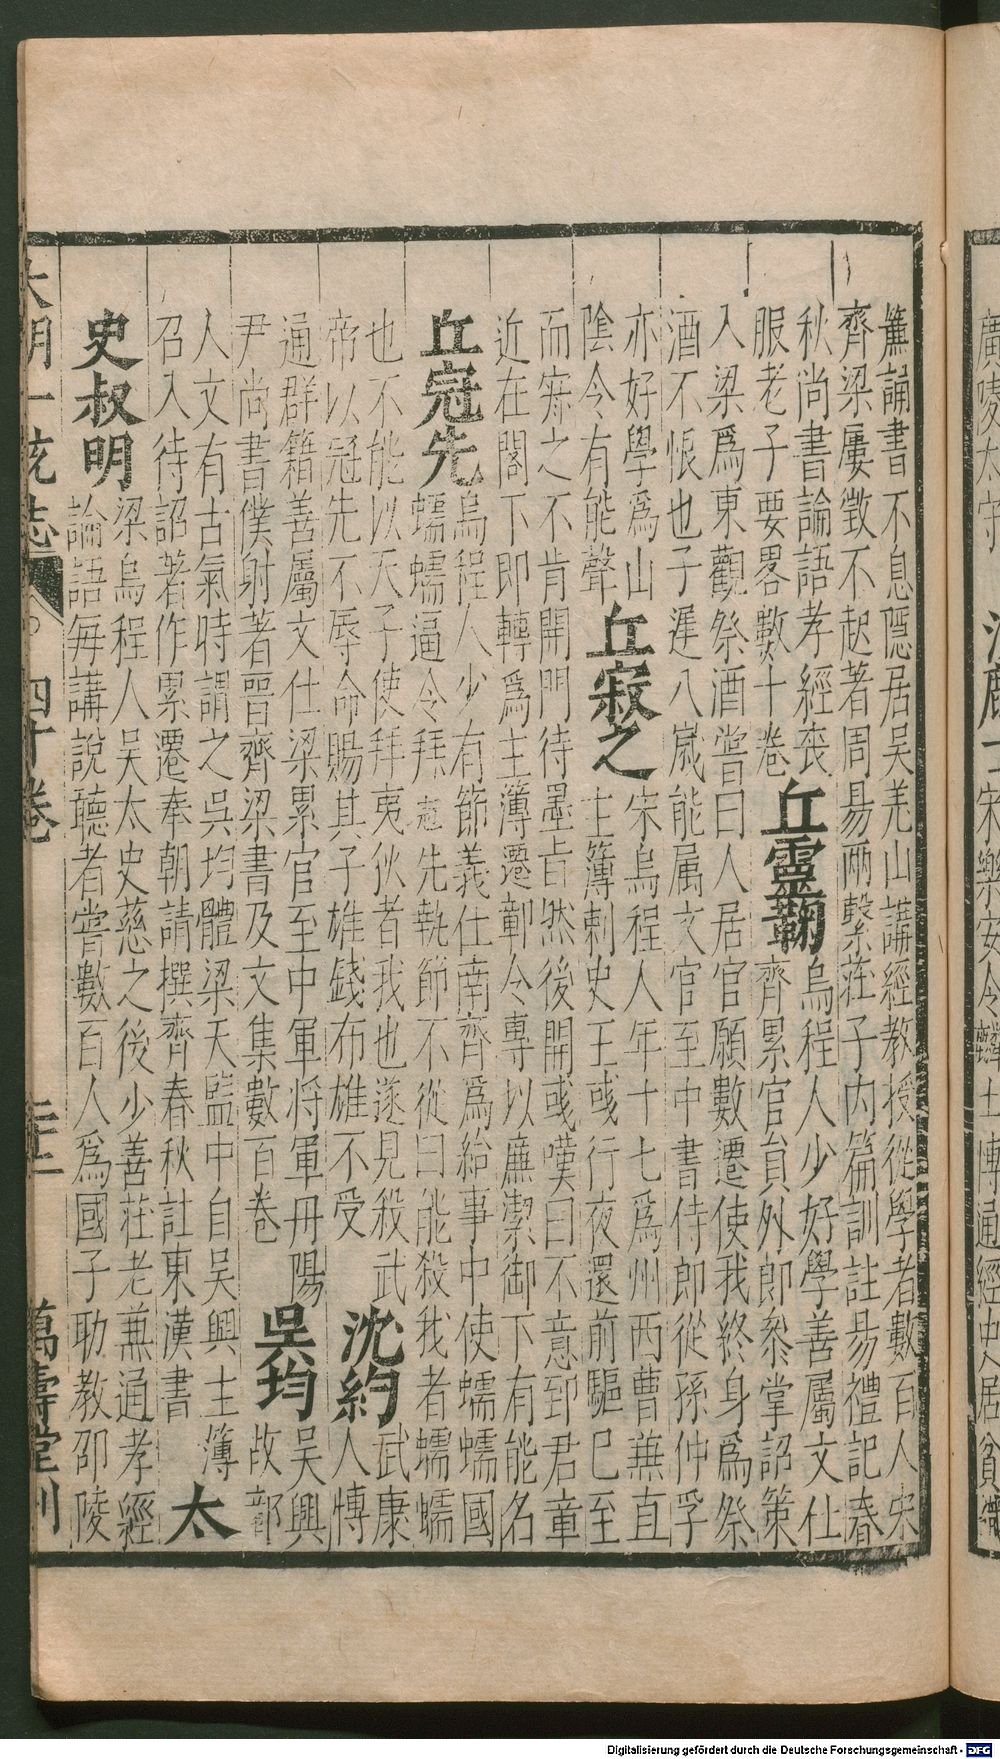 簾誦書不息隱居吳羌山講經教授從學者數百人宋
齊梁屢徵不起著周昜兩繫莊子內篇訓註昜禮記春
秋尚書論語孝經喪
服老子要畧數十卷
丘靈鞠
烏程人少好學善屬文仕
齊累官員外郎叅掌詔策
入梁爲東觀祭酒嘗曰人居官願數遷使我終身爲祭
酒不恨也子遲八歲能属文官至中書侍郎從孫仲孚
亦好學爲山
陰令有能聲
丘寂之
宋烏程人年十七爲州西曹兼直
主簿刺史王彧行夜還前驅已至
而寂之不肯開門待墨旨然後開彧嘆曰不意郅君章
近在閤下即轉爲主薄遷鄣令專以廉潔御下有能名
丘冠先
烏程人少有節義仕南齊爲給事中使蠕蠕國
蠕蠕逼令拜冠先執節不從曰能殺我者蠕蠕
也不能以天子使拜夷狄者我也遂見殺武
帝以冠先不辱命賜其子雄錢布雄不受
沈約
武康
人博
通群籍善屬文仕梁累官至中軍將軍丹陽
尹尚書僕射著晉齊梁書及文集數百卷
吳均
吳興
故鄣
人文有古氣時謂之吳均體梁天監中自吳興主薄
召入待詔著作累遷奉朝請撰齊春秋註東漢書
太
史叔明
梁烏程人吳太史慈之後少善莊老兼通孝經
論語每講說聽者嘗數百人爲國子助教邵陵
大明一統志
四十卷
萬壽堂刊
廣陵太守
宋樂安令
士博通經史居貧織
Digitalisierung gefördert durch die Deutsche Forschungsgemeinschaft - DFG